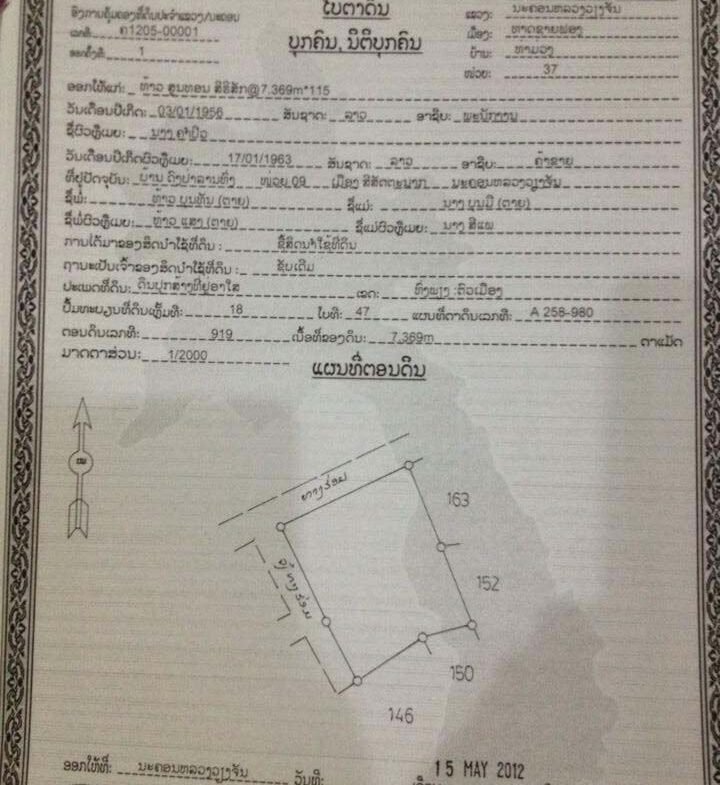 ໃບຕາດິນ
ບຸກຄົນ, ນິຕິບຸກຄົນ
ອົງການຄຸ້ມຄອງທີ່ດິນປະຈຳແຂວງ/ນະຄອນ
ເລກທີ: ຄ1205-00001
ອອກຄັ້ງທີ: 1
ແຂວງ: ນະຄອນຫລວງວຽງຈັນ
ເມືອງ: ຫາດຊາຍຟອງ
ບ້ານ:
ໜ່ວຍ: 37
ອອກໃຫ້ແກ່: ທ້າວ ສູນທອນ ສີຣິສັກ@7.369m*115
ວັນເດືອນປີເກີດ: 03/01/1956 ສັນຊາດ: ລາວ ອາຊີບ: ພະນັກງານ
ຊື່ຜົວຫຼືເມຍ: ນາງ ຄຳປິວ
ວັນເດືອນປີເກີດຜົວຫຼືເມຍ: 17/01/1963 ສັນຊາດ: ລາວ ອາຊີບ: ຄ້າຂາຍ
ທີ່ຢູ່ປັດຈຸບັນ: ບ້ານ ດົງປາລານທົ່ງ ໜ່ວຍ 09 ເມືອງ ສີສັດຕະນາກ ນະຄອນຫລວງວຽງຈັນ
ຊື່ພໍ່: ທ້າວ ບຸນທັນ (ຕາຍ) ຊື່ແມ່: ນາງ ບຸນມີ (ຕາຍ)
ຊື່ພໍ່ຜົວຫຼືເມຍ: ທ້າວ ແສງ (ຕາຍ) ຊື່ແມ່ຜົວຫຼືເມຍ: ນາງ ສີແພ
ການໄດ້ມາຂອງສິດນຳໃຊ້ທີ່ດິນ : ຊື້ສິດນຳໃຊ້ທີ່ດິນ
ຖານະເປັນເຈົ້າຂອງສິດນຳໃຊ້ທີ່ດິນ : ຊັບເດີມ
ປະເພດທີ່ດິນ: ດິນປຸກສ້າງທີ່ຢູ່ອາໃສ ເຂດ: ທົ່ງພຽງ :ຕົວເມືອງ
ປຶ້ມທະບຽນທີ່ດິນເຫຼັ້ມທີ: 18 ໃບທີ: 47 ແຜນທີ່ຕາດິນເລກທີ: A 258-980
ຕອນດິນເລກທີ: 919 ເນື້ອທີ່ຂອງດິນ: 7,369m ຕາແມັດ
ມາດຕາສ່ວນ: 1/2000
ແຜນທີ່ຕອນດິນ
ທາງຮ່ອມ
163
ທາງຮ່ອມ
152
150
146
ອອກໃຫ້ທີ່: ນະຄອນຫລວງວຽງຈັນ ວັນທີ: 15 MAY 2012